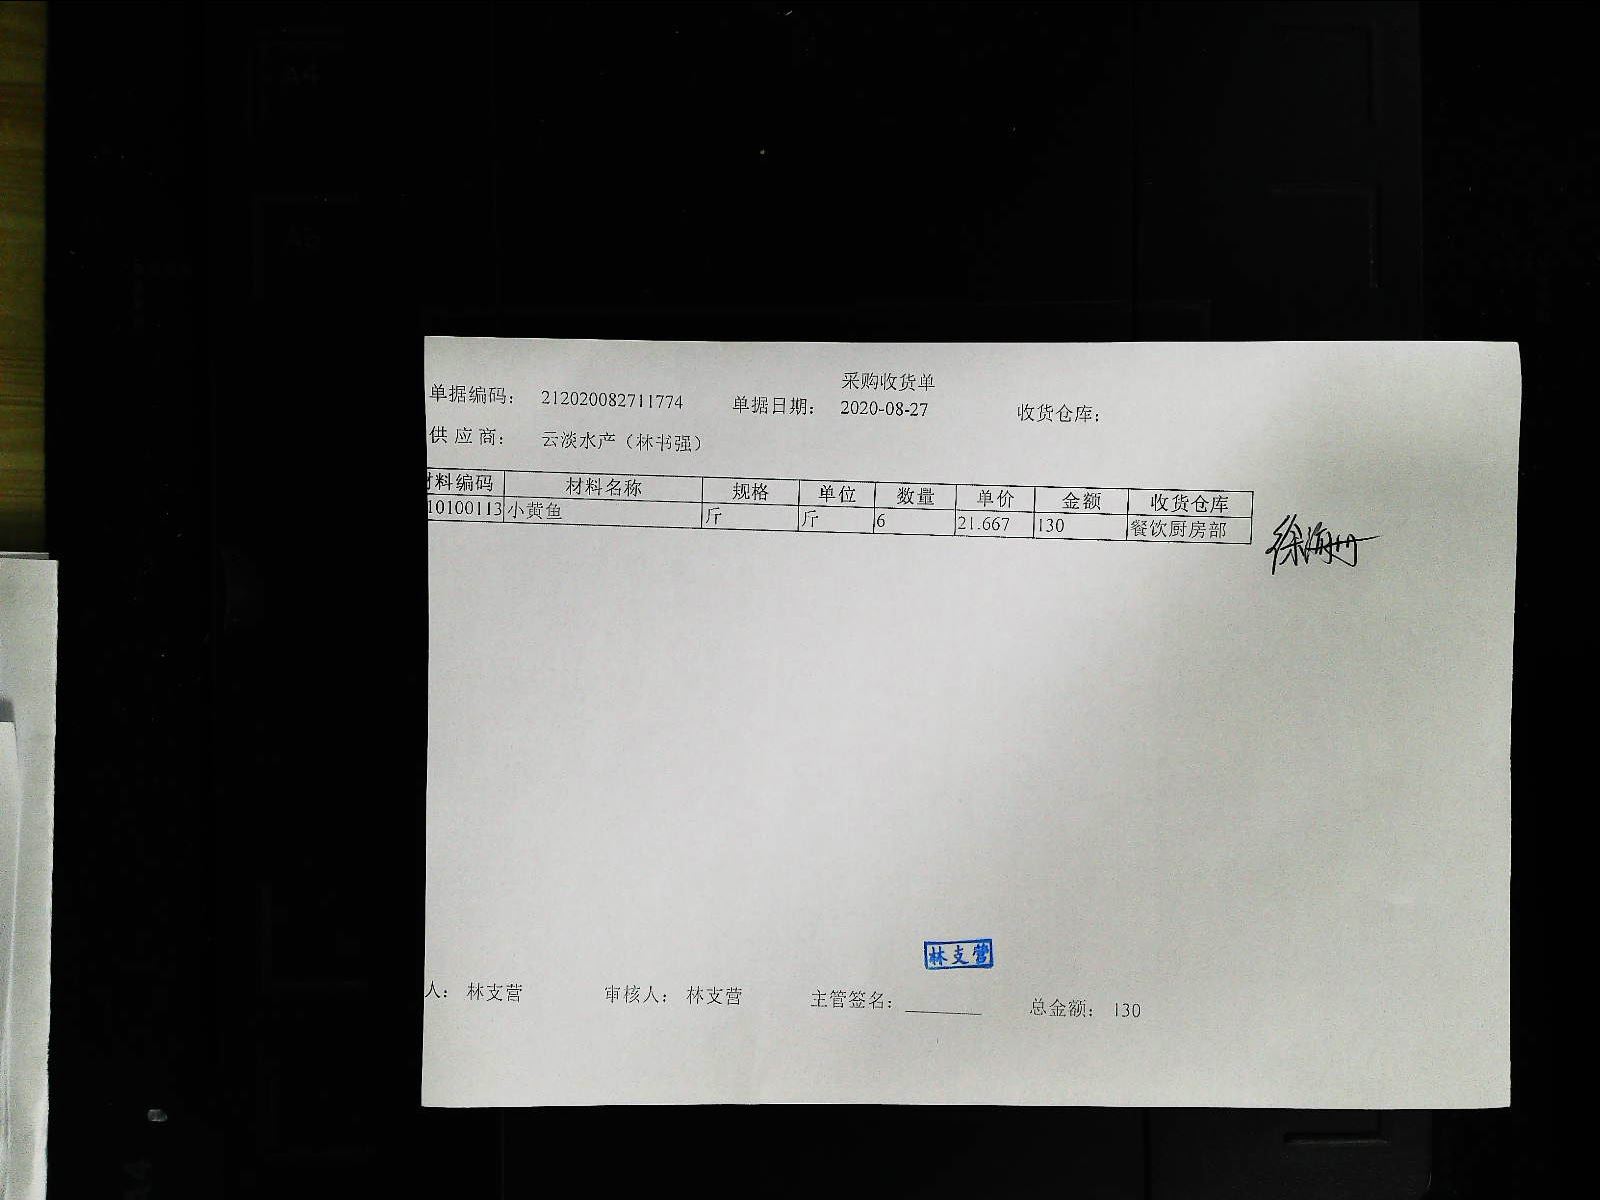 采购收货单
单据编码： 212020082711774 单据日期： 2020-08-27 收货仓库：
供 应 商： 云淡水产（林书强）
材料编码 材料名称 规格 单位 数量 单价 金额 收货仓库
10100113 小黄鱼 斤 斤 6 21.667 130 餐饮厨房部
林支营
人： 林支营 审核人： 林支营 主管签名：________ 总金额： 130
A4
A5